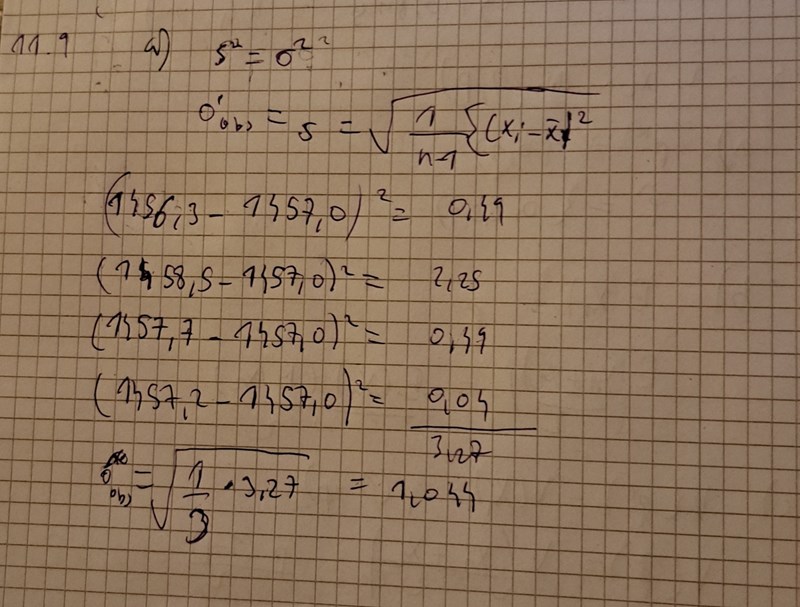 11.9 a) s² = σ²
σ'obs = s = √(1/(n-1) Σ(xᵢ - x̄)²
(1456,3 - 1457,0)² = 0,49
(1458,5 - 1457,0)² = 2,25
(1457,7 - 1457,0)² = 0,49
(1457,2 - 1457,0)² = 0,04
3,27
σobs = √(1/3 · 3,27) = 1,044